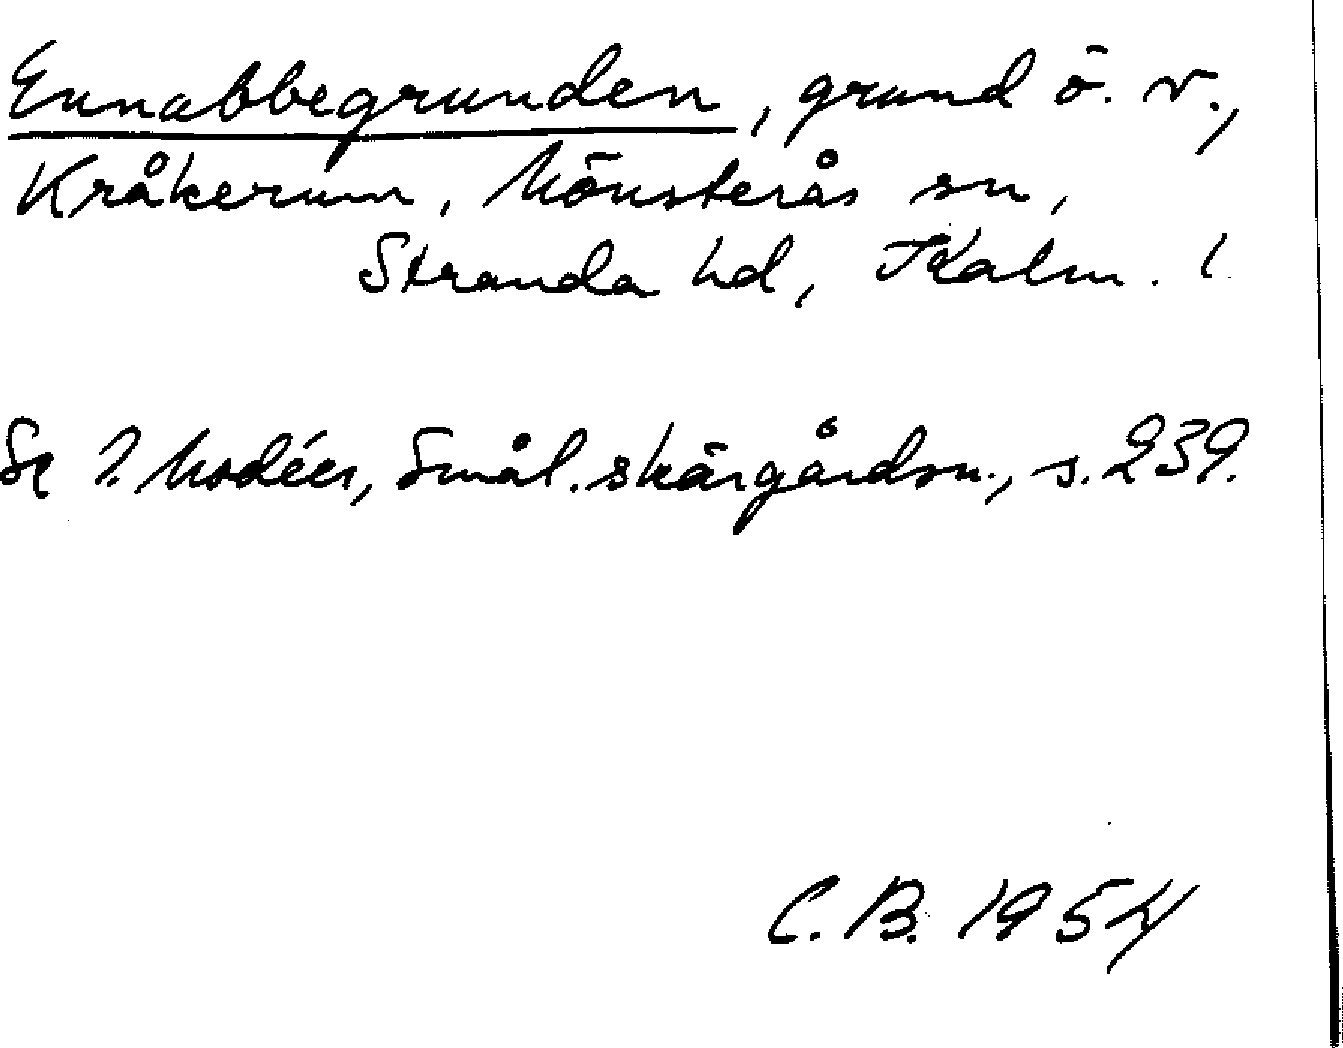 Ennabbegrunden, grund ö. v.,
Kråkerum, Mönsterås sn,
Stranda hd, Kalm. l.
Se I. Modéer, Smål. skärgårdsn., s. 239.
C. B. 1954